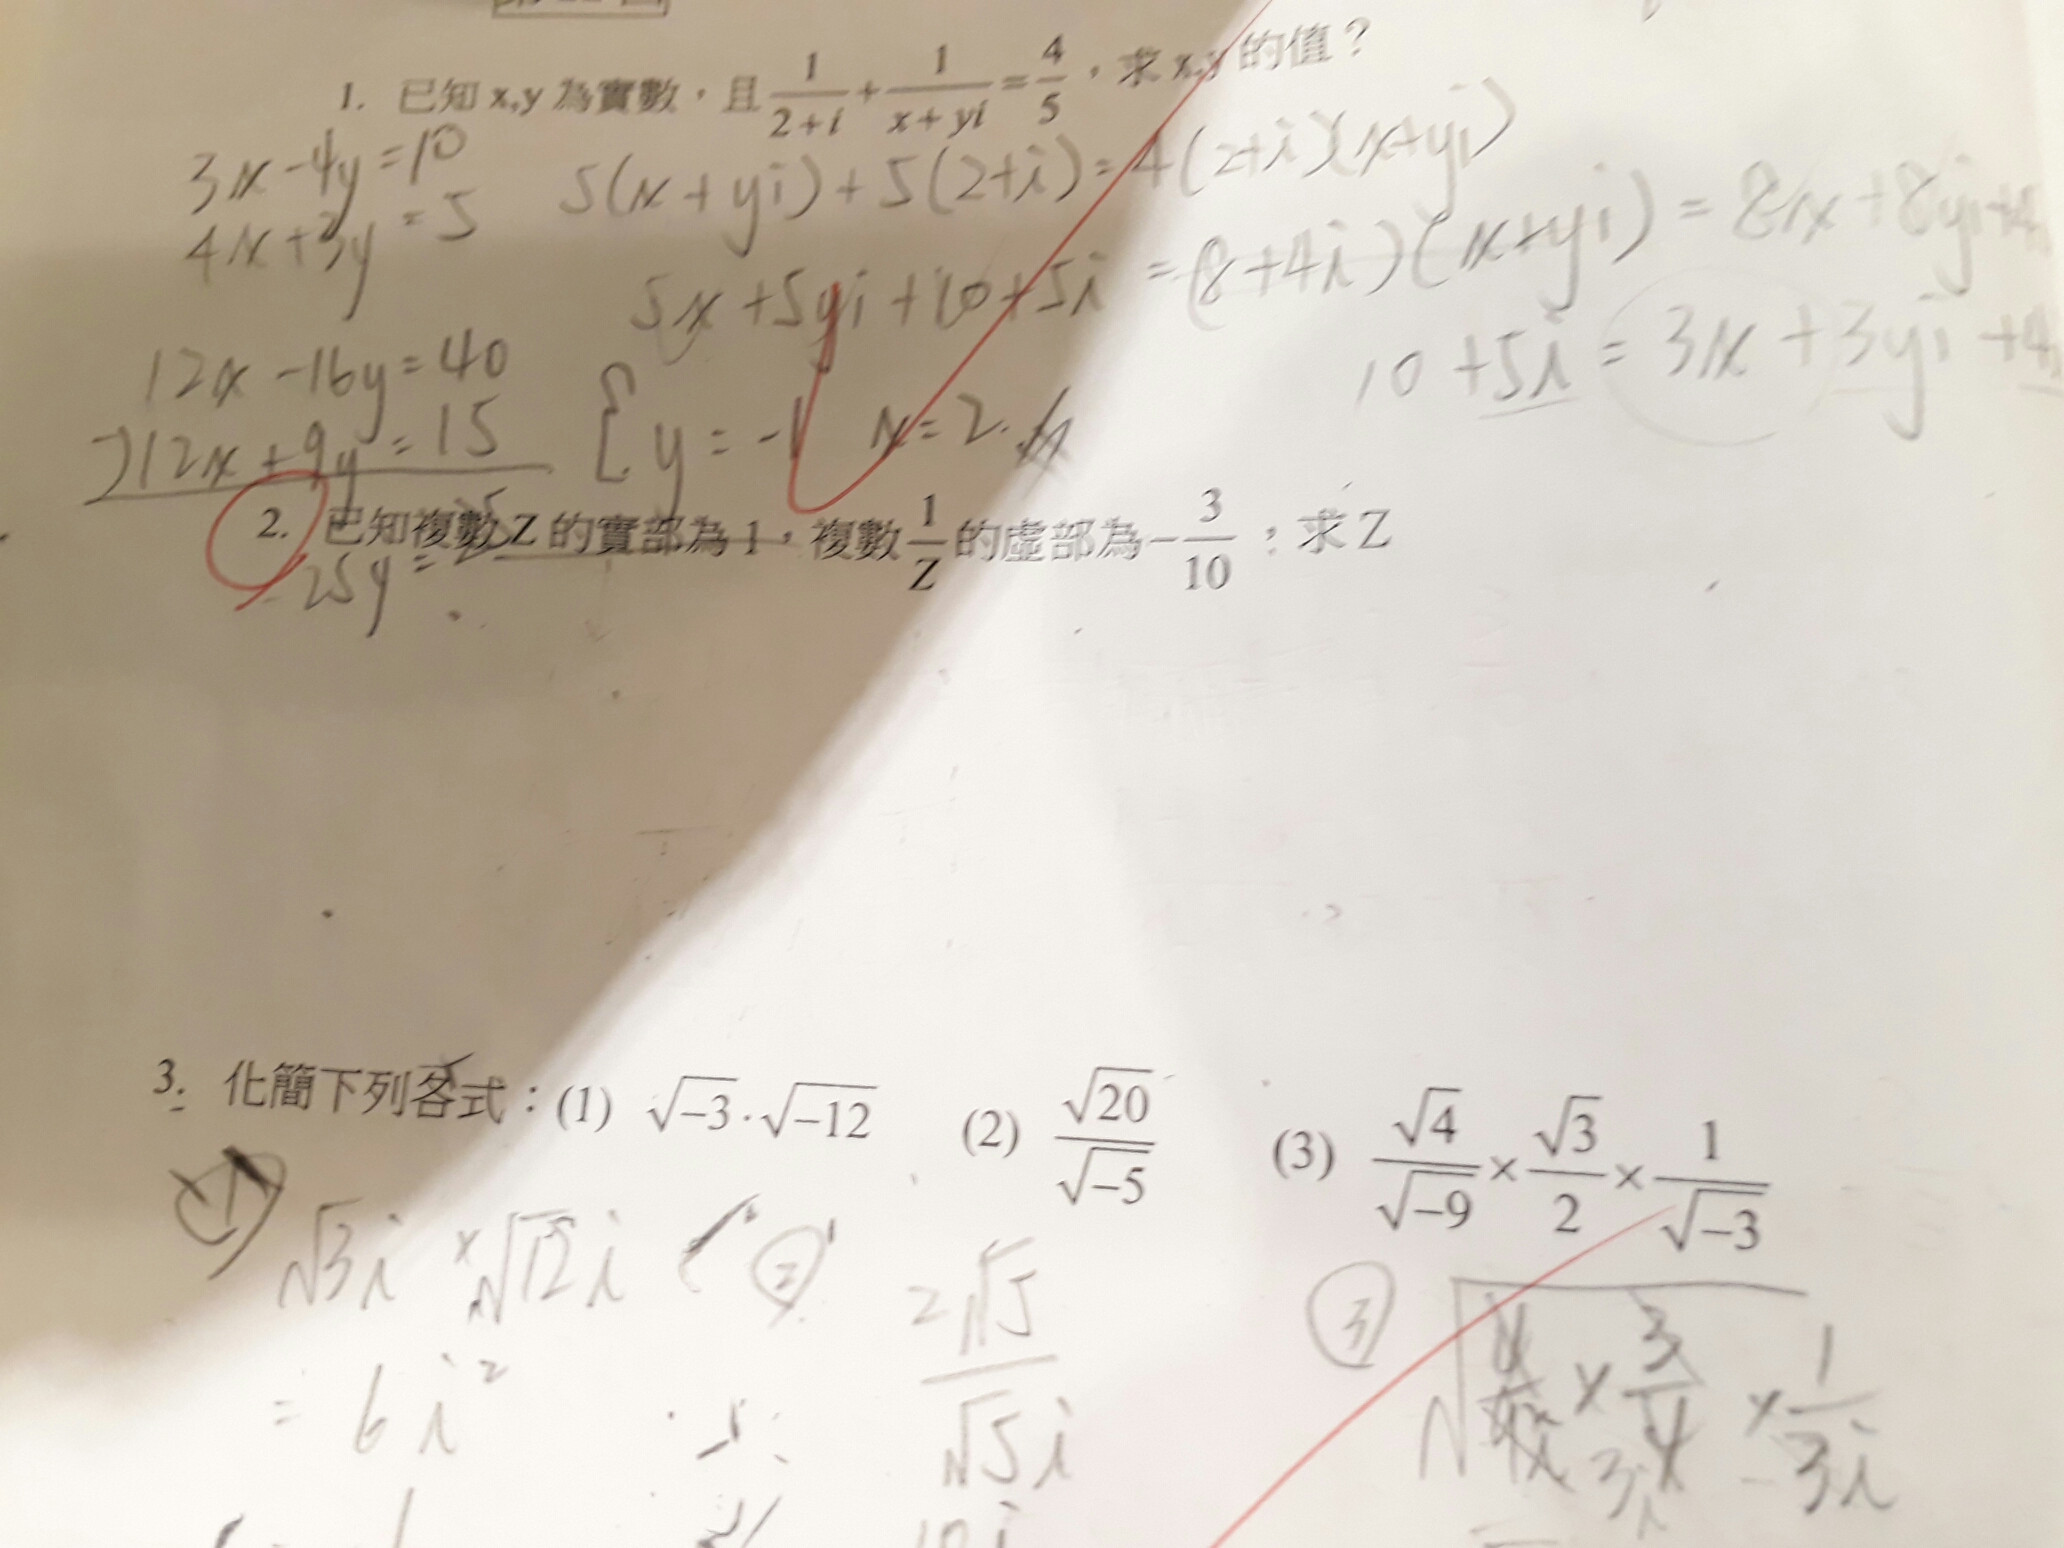 1. 已知 x,y 為實數，且 1/(2+i) + 1/(x+yi) = 4/5，求 x,y 的值？
3x-4y=10
4x+3y=5
5(x+yi)+5(2+i)=4(2+i)(x+yi)
5x+5yi+10+5i=(8+4i)(x+yi)=8x+8yi+4
10+5i=3x+3yi+4
12x-16y=40
)12x+9y=15
-25y=25
{ y=-1 x=2.
2. 已知複數 Z 的實部為 1，複數 1/Z 的虛部為 -3/10；求 Z
3. 化簡下列各式：(1) √-3·√-12 (2) √20/√-5 (3) √4/√-9 × √3/2 × 1/√-3
①
√3i × √12i
= 6i²
②
2√5/√5i
10i
③
× 1/3i